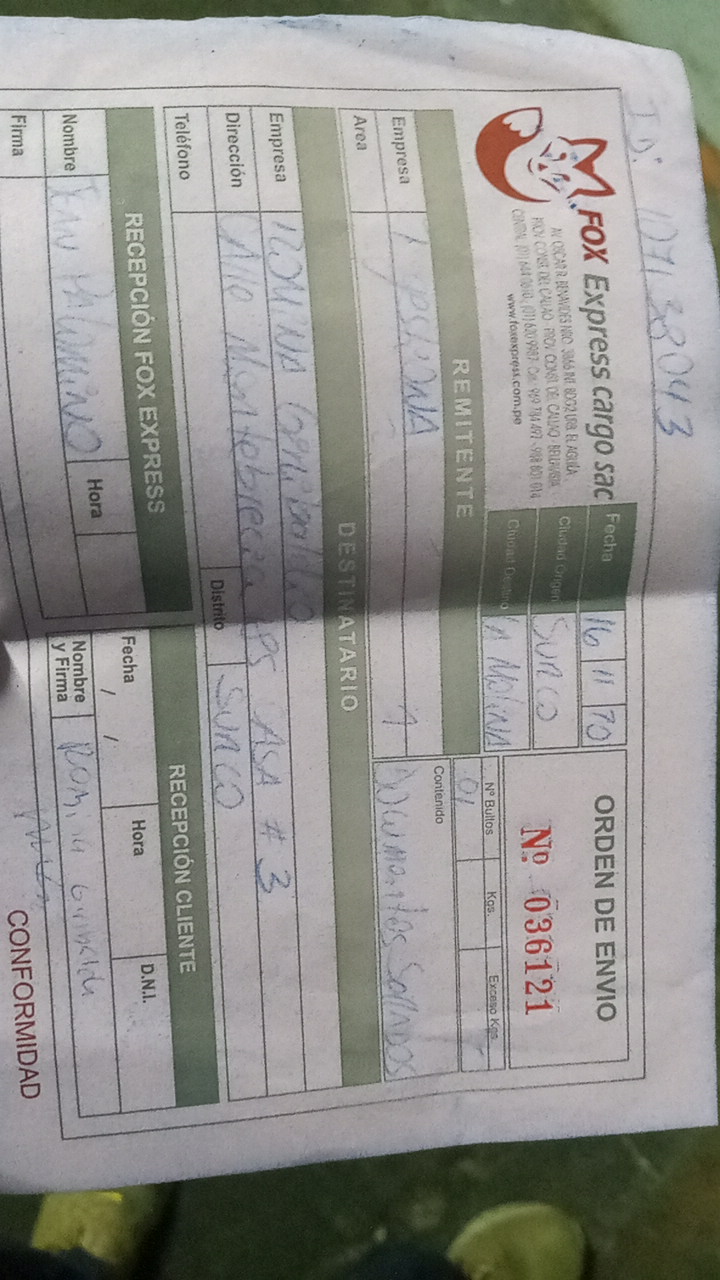 I.D: 107138043
FOX Express cargo sac
AV. OSCAR R. BENAVIDES NRO. 3866 INT. 8D02 URB. EL AGUILA
PROV. CONST. DEL CALLAO - PROV. CONST. DEL CALLAO - BELLAVISTA
www.foxexpress.com.pe
Fecha 16 11 70
Ciudad Origen SURCO
Ciudad Destino LA MOLINA
ORDEN DE ENVIO
Nº 036121
REMITENTE
Empresa
Area
Nº Bultos Kgs. Exceso Kgs.
01
Contenido
DOCUMENTOS SELLADOS
DESTINATARIO
Empresa ROMINA
Dirección CALLE CASA # 3
Teléfono
Distrito SURCO
RECEPCIÓN FOX EXPRESS
Nombre PALOMINO
Hora
Firma
RECEPCIÓN CLIENTE
Fecha / /
Hora
D.N.I.
Nombre y Firma Romina
CONFORMIDAD